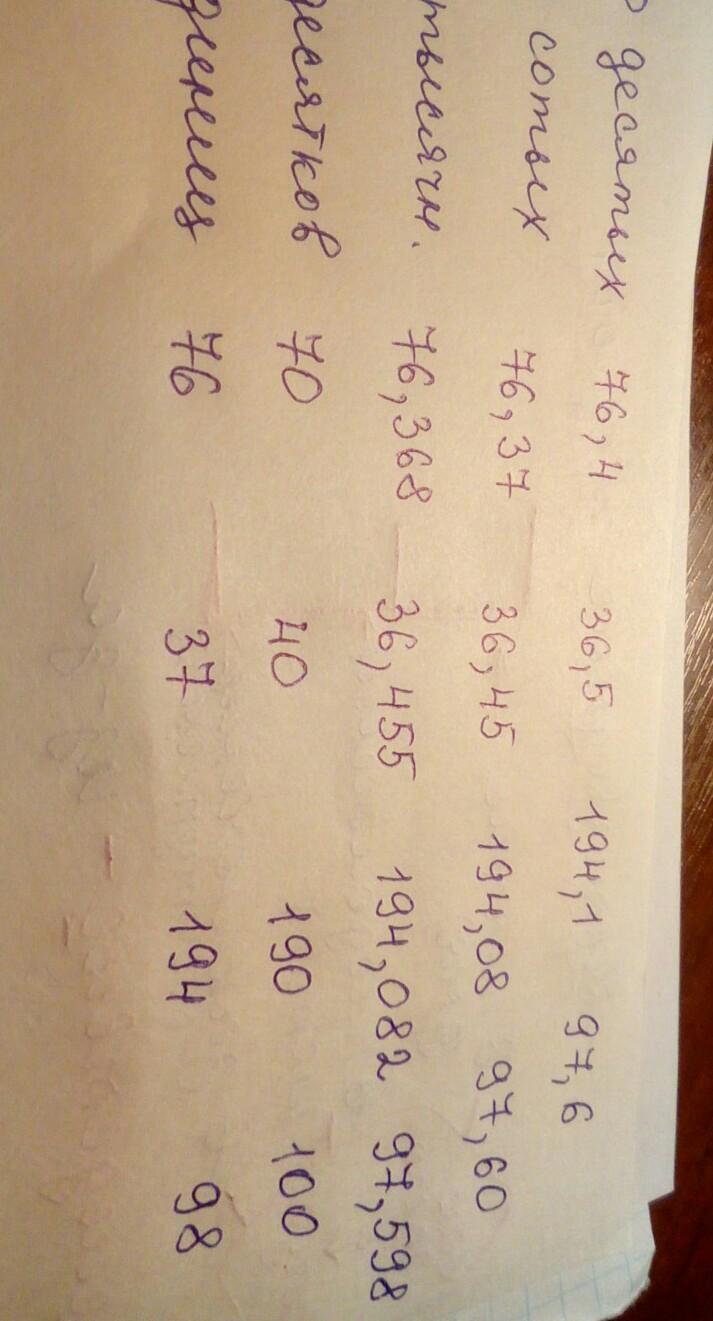 десятых 76,4 36,5 194,1 97,6
сотых 76,37 36,45 194,08 97,60
тысячн. 76,368 36,455 194,082 97,598
десятков 70 40 190 100
единиц 76 37 194 98